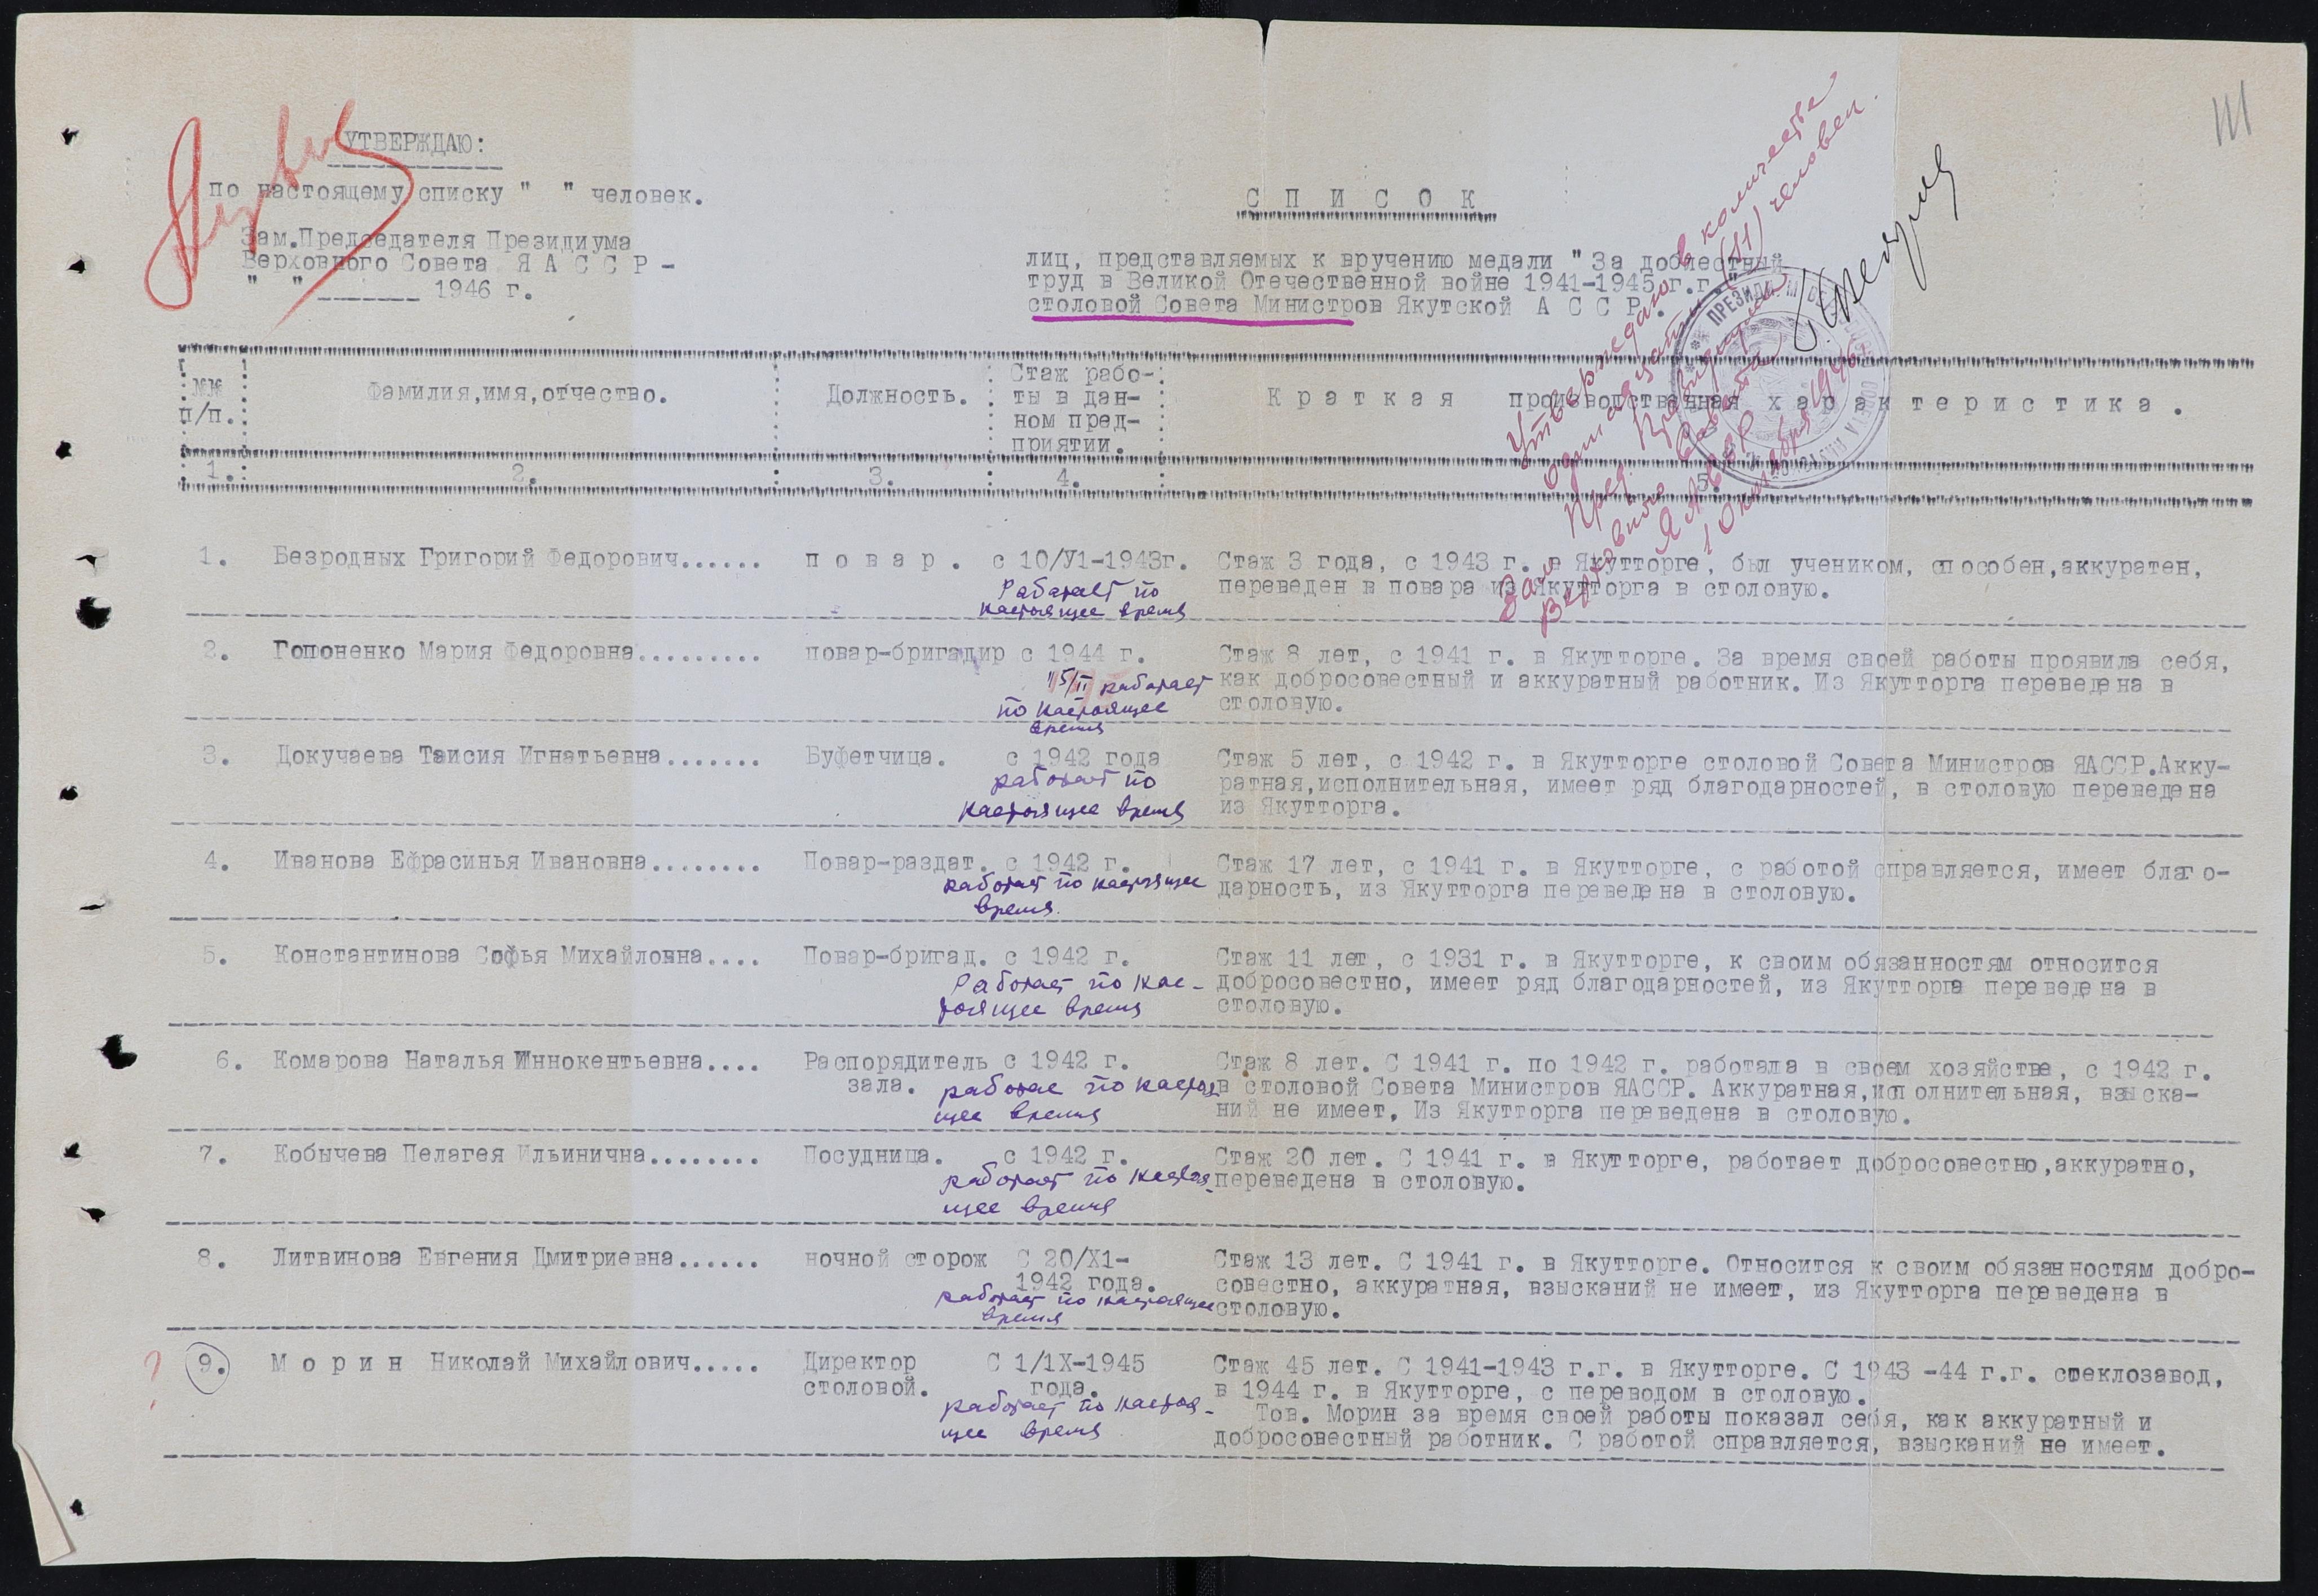 111
УТВЕРЖДАЮ:
по настоящему списку " " человек.
Зам.Председателя Президиума
Верховного Совета Я А С С Р -
" " 1946 г.
С П И С О К
лиц, представляемых к вручению медали "За доблестный
труд в Великой Отечественной войне 1941-1945 г.г."
столовой Совета Министров Якутской А С С Р.
Утверждаю в количестве
одиннадцати (11) человек.
Зам. Пред. Президиума
Верховного Совета
ЯАССР
1 октября 1946 г.
№№ п/п.
Фамилия,имя,отчество.
Должность.
Стаж рабо-
ты в дан-
ном пред-
приятии.
К р а т к а я производственная х а р а к т е р и с т и к а .
1. 2. 3. 4. 5.
1. Безродных Григорий Федорович...... п о в а р . с 10/У1-1943г. Стаж 3 года, с 1943 г. в Якутторге, был учеником, способен,аккуратен,
переведен в повара из Якутторга в столовую.
Работает по
настоящее время
2. Гопоненко Мария Федоровна......... повар-бригадир с 1944 г. Стаж 8 лет, с 1941 г. в Якутторге. За время своей работы проявила себя,
15/II работает как добросовестный и аккуратный работник. Из Якутторга переведена в
по настоящее столовую.
время
3. Докучаева Таисия Игнатьевна....... Буфетчица. с 1942 года Стаж 5 лет, с 1942 г. в Якутторге столовой Совета Министров ЯАССР.Акку-
работает по ратная,исполнительная, имеет ряд благодарностей, в столовую переведена
настоящее время из Якутторга.
4. Иванова Ефрасинья Ивановна........ Повар-раздат. с 1942 г. Стаж 17 лет, с 1941 г. в Якутторге, с работой справляется, имеет благо-
работает по настоящее дарность, из Якутторга переведена в столовую.
время.
5. Константинова Софья Михайловна.... Повар-бригад. с 1942 г. Стаж 11 лет, с 1931 г. в Якутторге, к своим обязанностям относится
Работает по нас- добросовестно, имеет ряд благодарностей, из Якутторга переведена в
тоящее время столовую.
6. Комарова Наталья Иннокентьевна.... Распорядитель с 1942 г. Стаж 8 лет. С 1941 г. по 1942 г. работала в своем хозяйстве, с 1942 г.
зала. работае по настоя- в столовой Совета Министров ЯАССР. Аккуратная,исполнительная, взыска-
щее время ний не имеет, Из Якутторга переведена в столовую.
7. Кобычева Пелагея Ильинична........ Посудница. с 1942 г. Стаж 20 лет. С 1941 г. в Якутторге, работает добросовестно,аккуратно,
работает по настоя- переведена в столовую.
щее время
8. Литвинова Евгения Дмитриевна...... ночной сторож С 20/Х1- Стаж 13 лет. С 1941 г. в Якутторге. Относится к своим обязанностям добро-
1942 года. совестно, аккуратная, взысканий не имеет, из Якутторга переведена в
работает по настоящее столовую.
время
? 9. М о р и н Николай Михайлович..... Директор С 1/1Х-1945 Стаж 45 лет. С 1941-1943 г.г. в Якутторге. С 1943 -44 г.г. стеклозавод,
столовой. года. в 1944 г. в Якутторге, с переводом в столовую.
работает по настоя- Тов. Морин за время своей работы показал себя, как аккуратный и
щее время добросовестный работник. С работой справляется, взысканий не имеет.